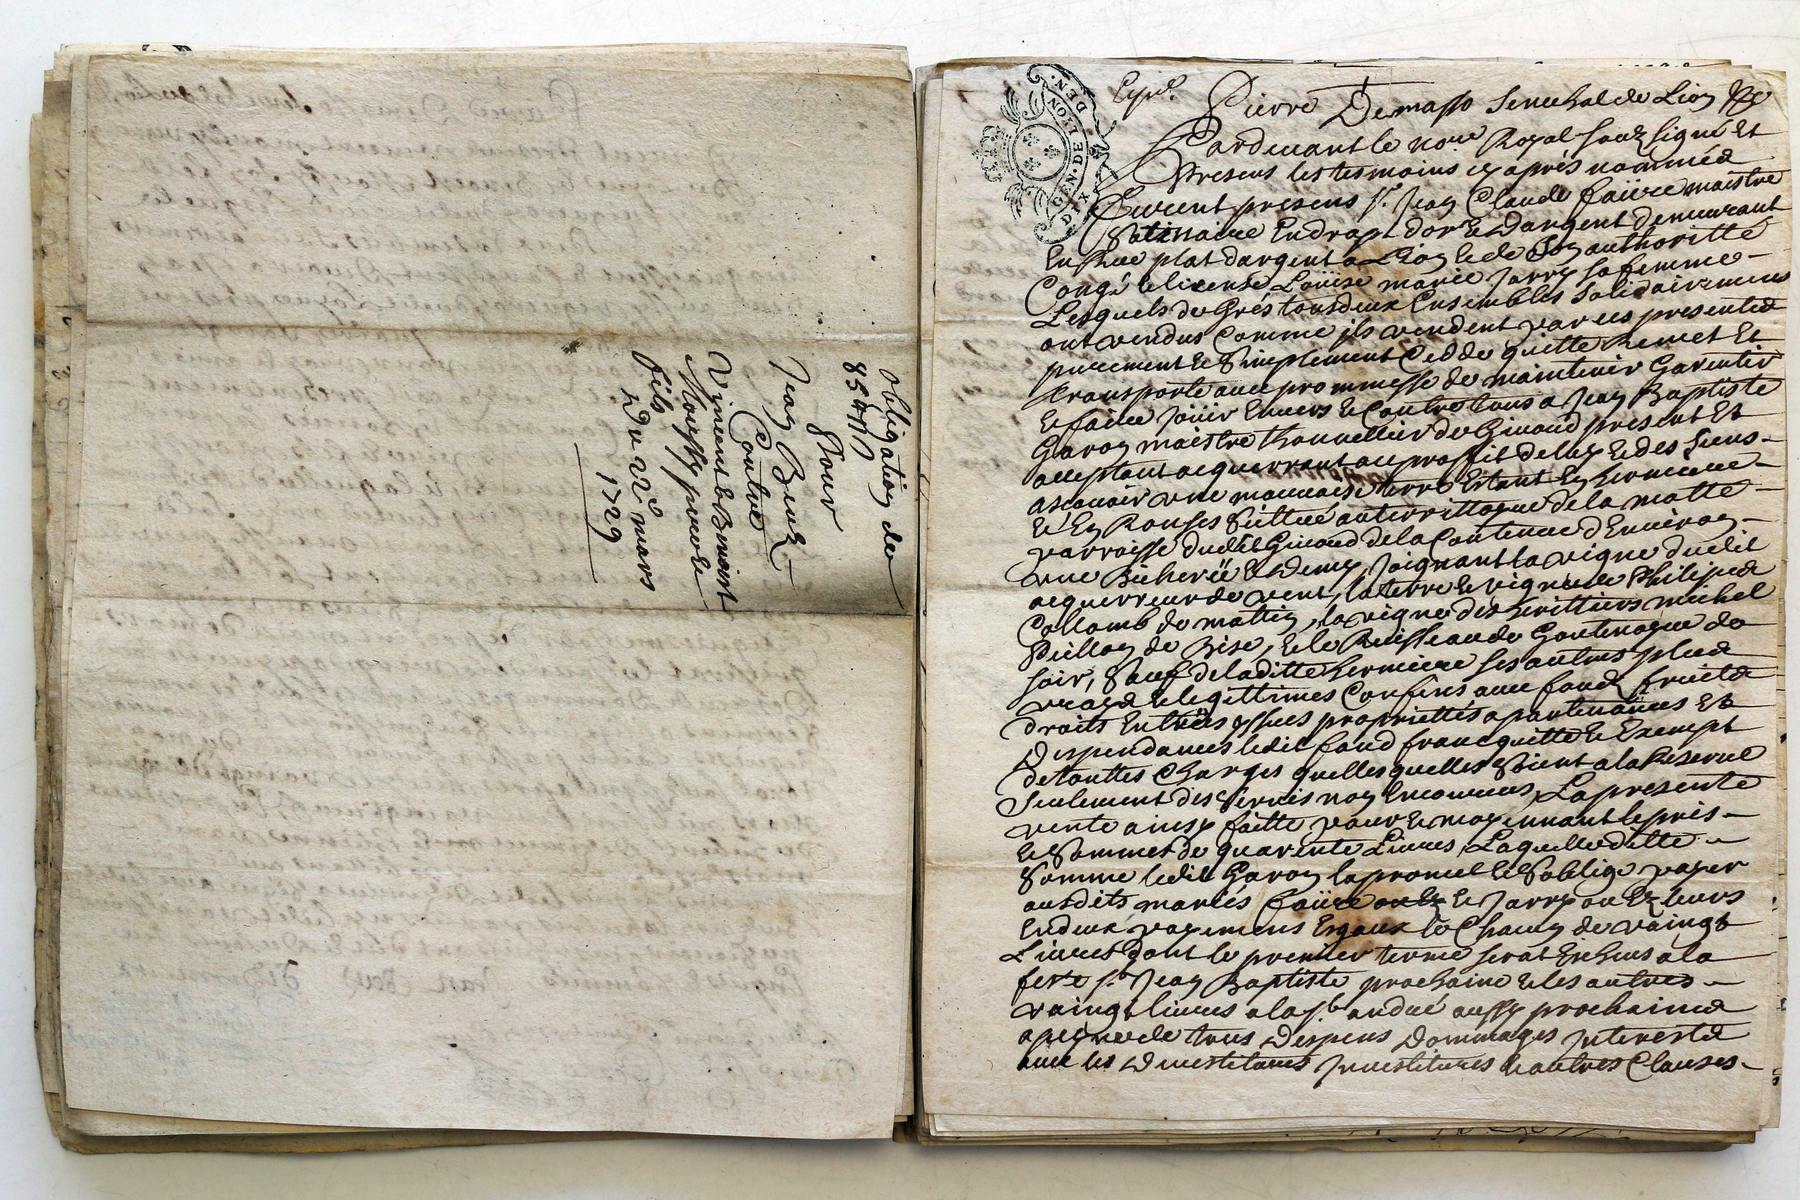 obligation de
85 ₶
Pour
Jean
Contre
Vincent & Benoist
fils
Du 22e mars
1729
GEN. DE LYON
DIX DEN.
Expe.
Pierre Demasso Senechal de Lion &c
Pardevant le nore Royal souzsigné Et
Presens les tesmoins cy aprés nommés
furent presens sr. Jean Claude faure maistre
Satinaire En drapt dor & Dargent Demeurant
En Rue plat dargent a Lion & de son authoritté
Congé & license Loüise marie Jarry sa femme
Lesquels de Grés tous deux Ensembles solidairement
ont vendus Comme ils vendent par ces presentes
purement & Simplement Cedde quitte Remet Et
transporte avec prommesse de maintenir Garentir
& faire Joüir Envers & Contre tous a Jean Baptiste
Garon maistre de Givord present Et
acceptant acquerrant au proffit de luy & des siens
ascavoir une mauvaise terre Estant En hermiere
& En Ronses Scittué au territtoire de la motte
parroisse dudit Givord de la Contenue d'Environ
une Bicherée & Demy, Joignant la vigne dudit
acquerreur de vent, la terre & vigne de Philipes
Collomb de mattin, la vigne des herittiers michel
de Bise, & le Ruisseau de de
soir, Sauf de laditte hermiere ses autres plus
vrays & legittimes Confins avec fond fruicts
droits Entrées yssües propriettés apartenances Et
Despendances ledit fond franc quitte & Exempt
de touttes Charges quelles quelles Soient a la Reserve
Seulement des Servis non Encourus, La presente
vente ainsy faitte pour & moyennant le pris
& Sommes de quarente Livres, Laquelle ditte
Somme ledit Garon la promet & Soblige payer
ausdits mariés faure & Jarry ou Ez leurs
En deux payemens Egaux de Chacun de vaingt
Livres dont le premier terme serat Eschus a la
feste st. Jean Baptiste prochaine & les autres
vaingt livres a la st. andré aussy prochaines
a peyne de tous Despens Dommages Interests
avec les Divestitures Investitures & autres Clauses